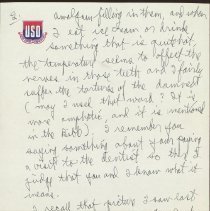 2.
USO
amalgam filling in them, and when
I eat ice cream or drink
something that is quite hot
the temperature seems to affect the
nerves in those teeth and I fairly
suffer the tortures of the damned
(may I used that word? It is
more emphatic, and it is mentioned
in the Bible). I remember you
saying something about your paying
a visit to the dentist so they I
judge that you and I know what it
means.
I recall that picture I saw last